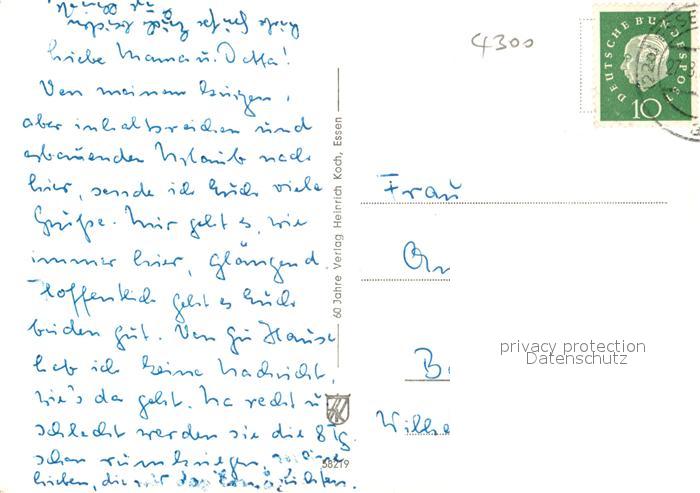 Liebe Mama u. Detta!
Von meinem kurzen,
aber inhaltsreichen und
erbauenden Urlaub nach
hier, sende ich Euch viele
Grüße. Mir geht es, wie
immer hier, glänzend.
Hoffentlich geht es Euch
beiden gut. Von zu Hause
hab ich keine Nachricht,
wie's da geht. Na recht u.
schlecht werden sie die 8 Tg.
schon rumkriegen,
lieben, die wir
60 Jahre Verlag Heinrich Koch, Essen
58219
4300
DEUTSCHE BUNDESPOST
10
Frau
B
Wilhe
privacy protection
Datenschutz